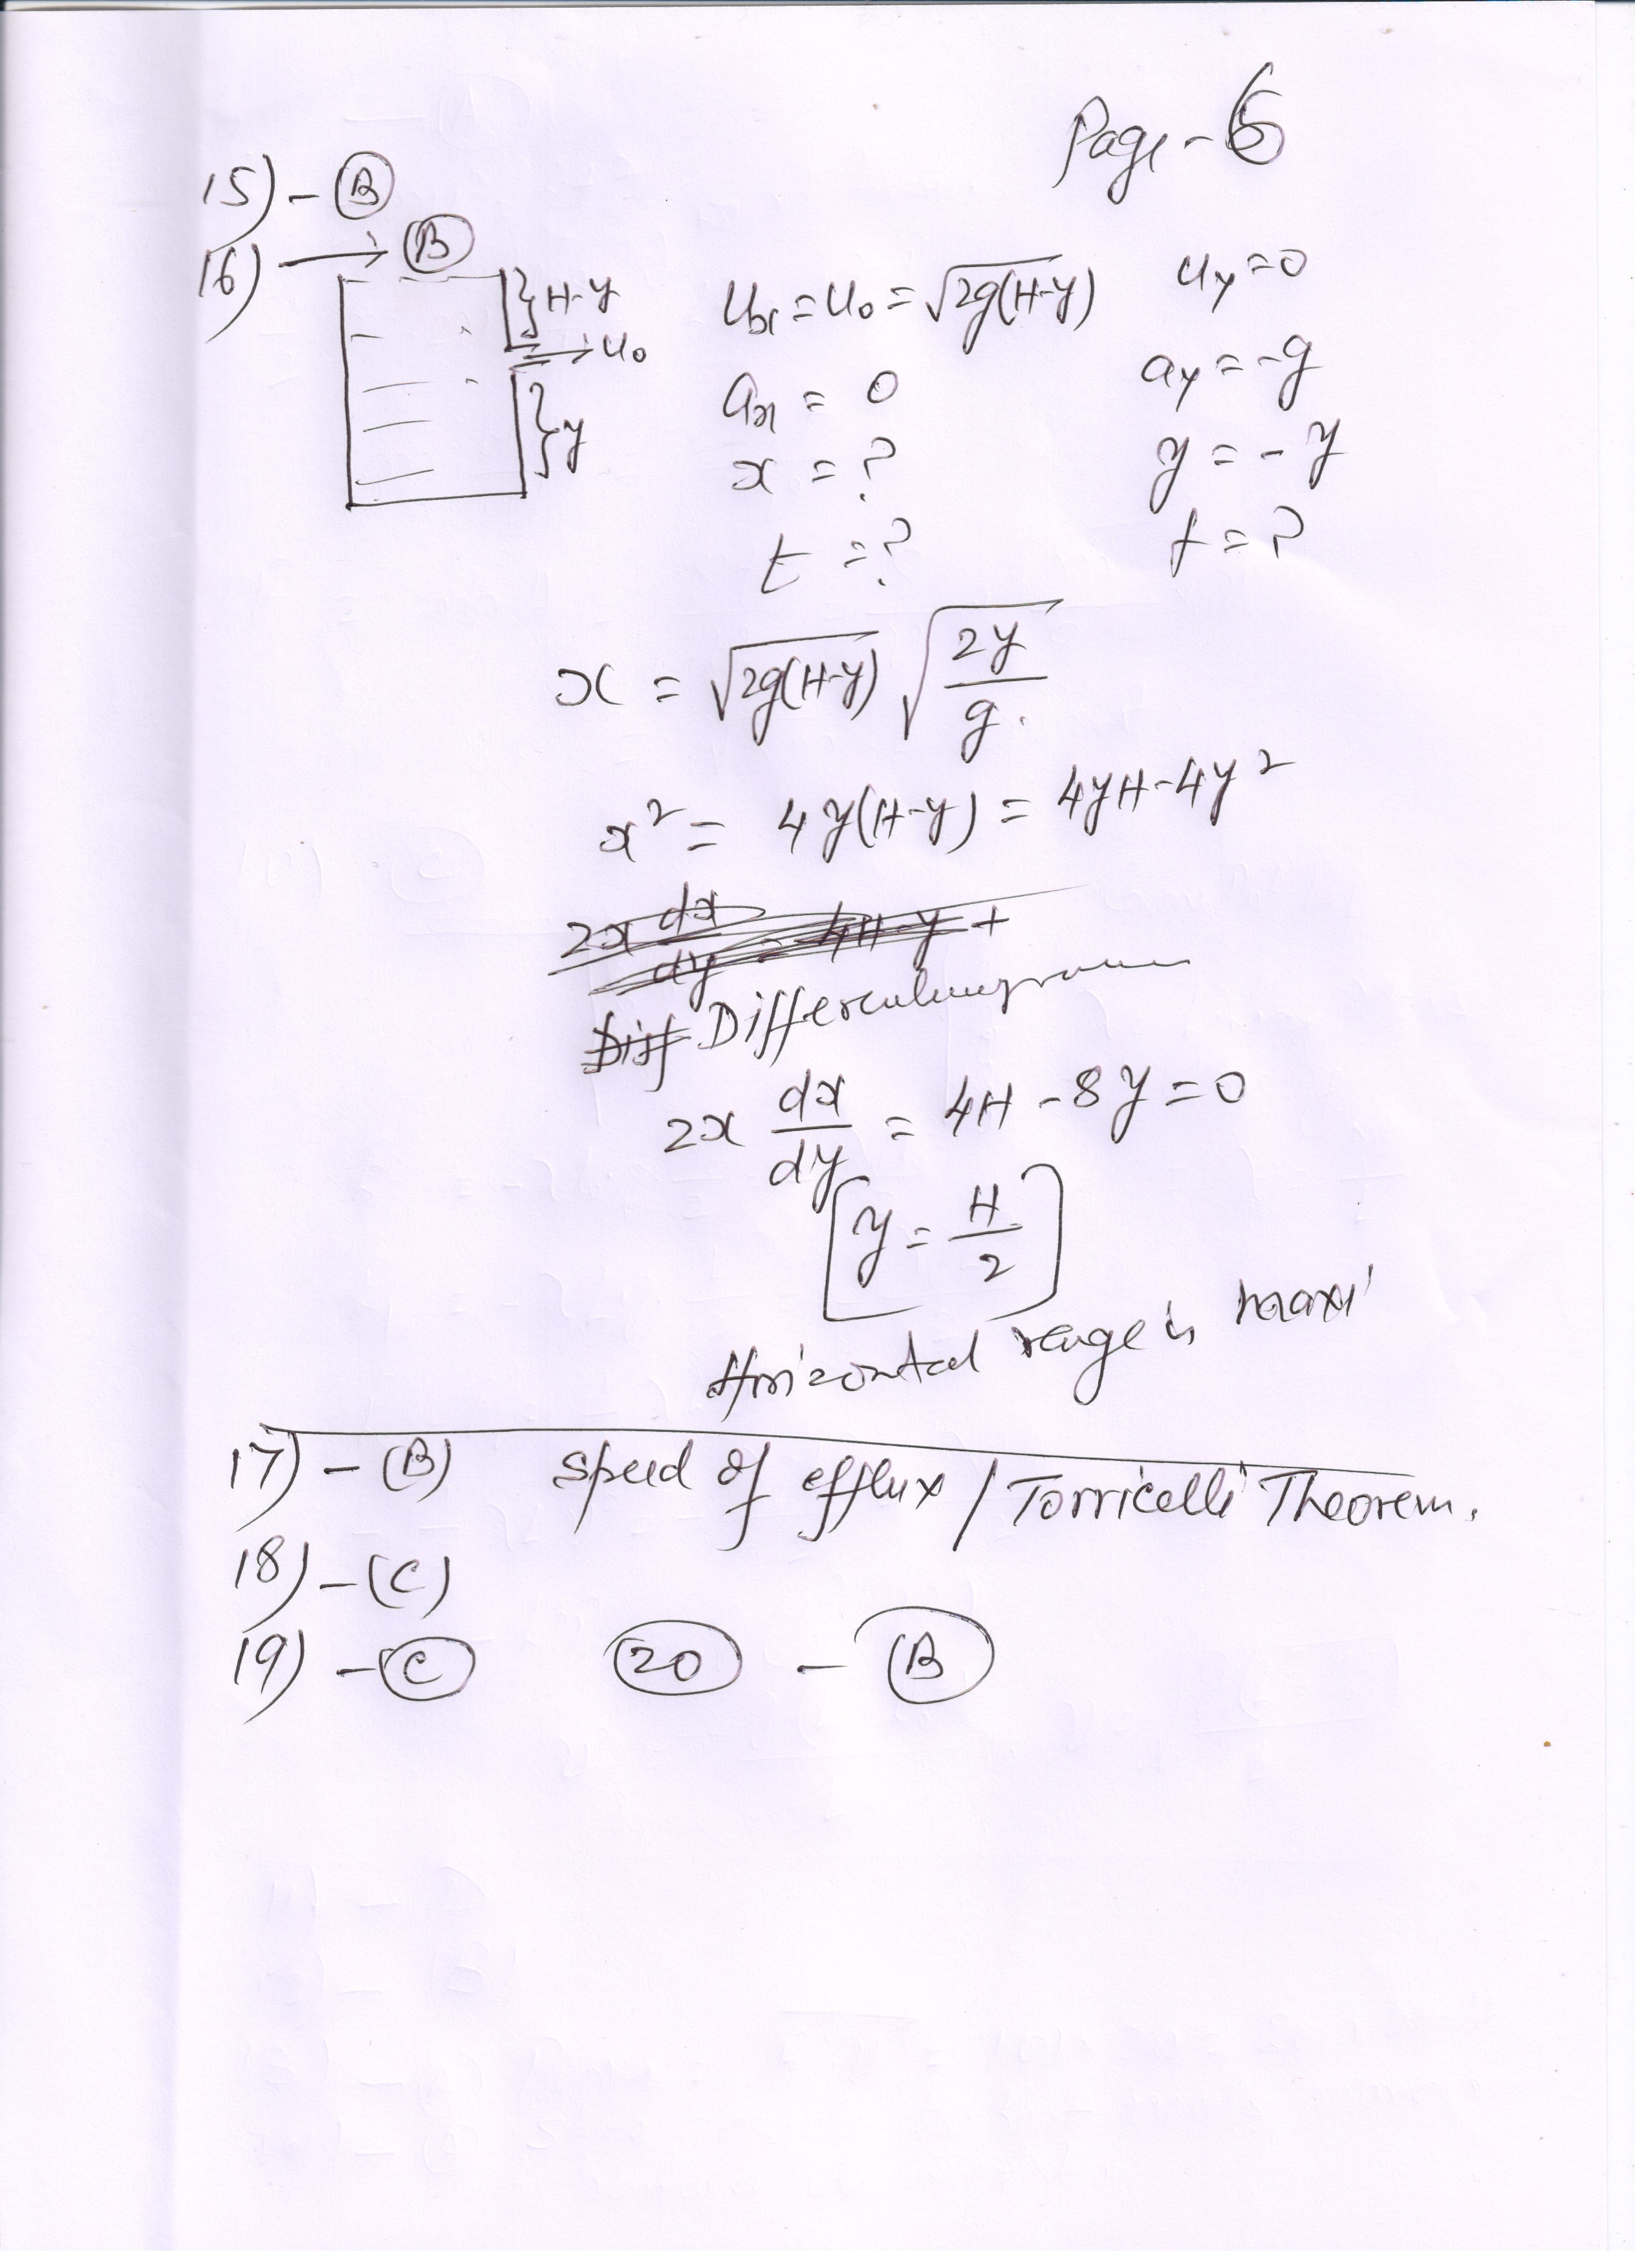 Page - 6
15) - B
16) → B
H-y
u₀
y
uₓ = u₀ = √2g(H-y)    u_y = 0
aₓ = 0    a_y = -g
x = ?    y = -y
t = ?    t = ?
x = √2g(H-y) √(2y/g)
x² = 4y(H-y) = 4yH-4y²
2x dx/dy = 4H-y +
Diff
2x dx/dy = 4H - 8y = 0
[y = H/2]
Horizontal range is maxi
17) - (B) speed of efflux / Torricelli Theorem.
18) - (C)
19) - C    20 - B